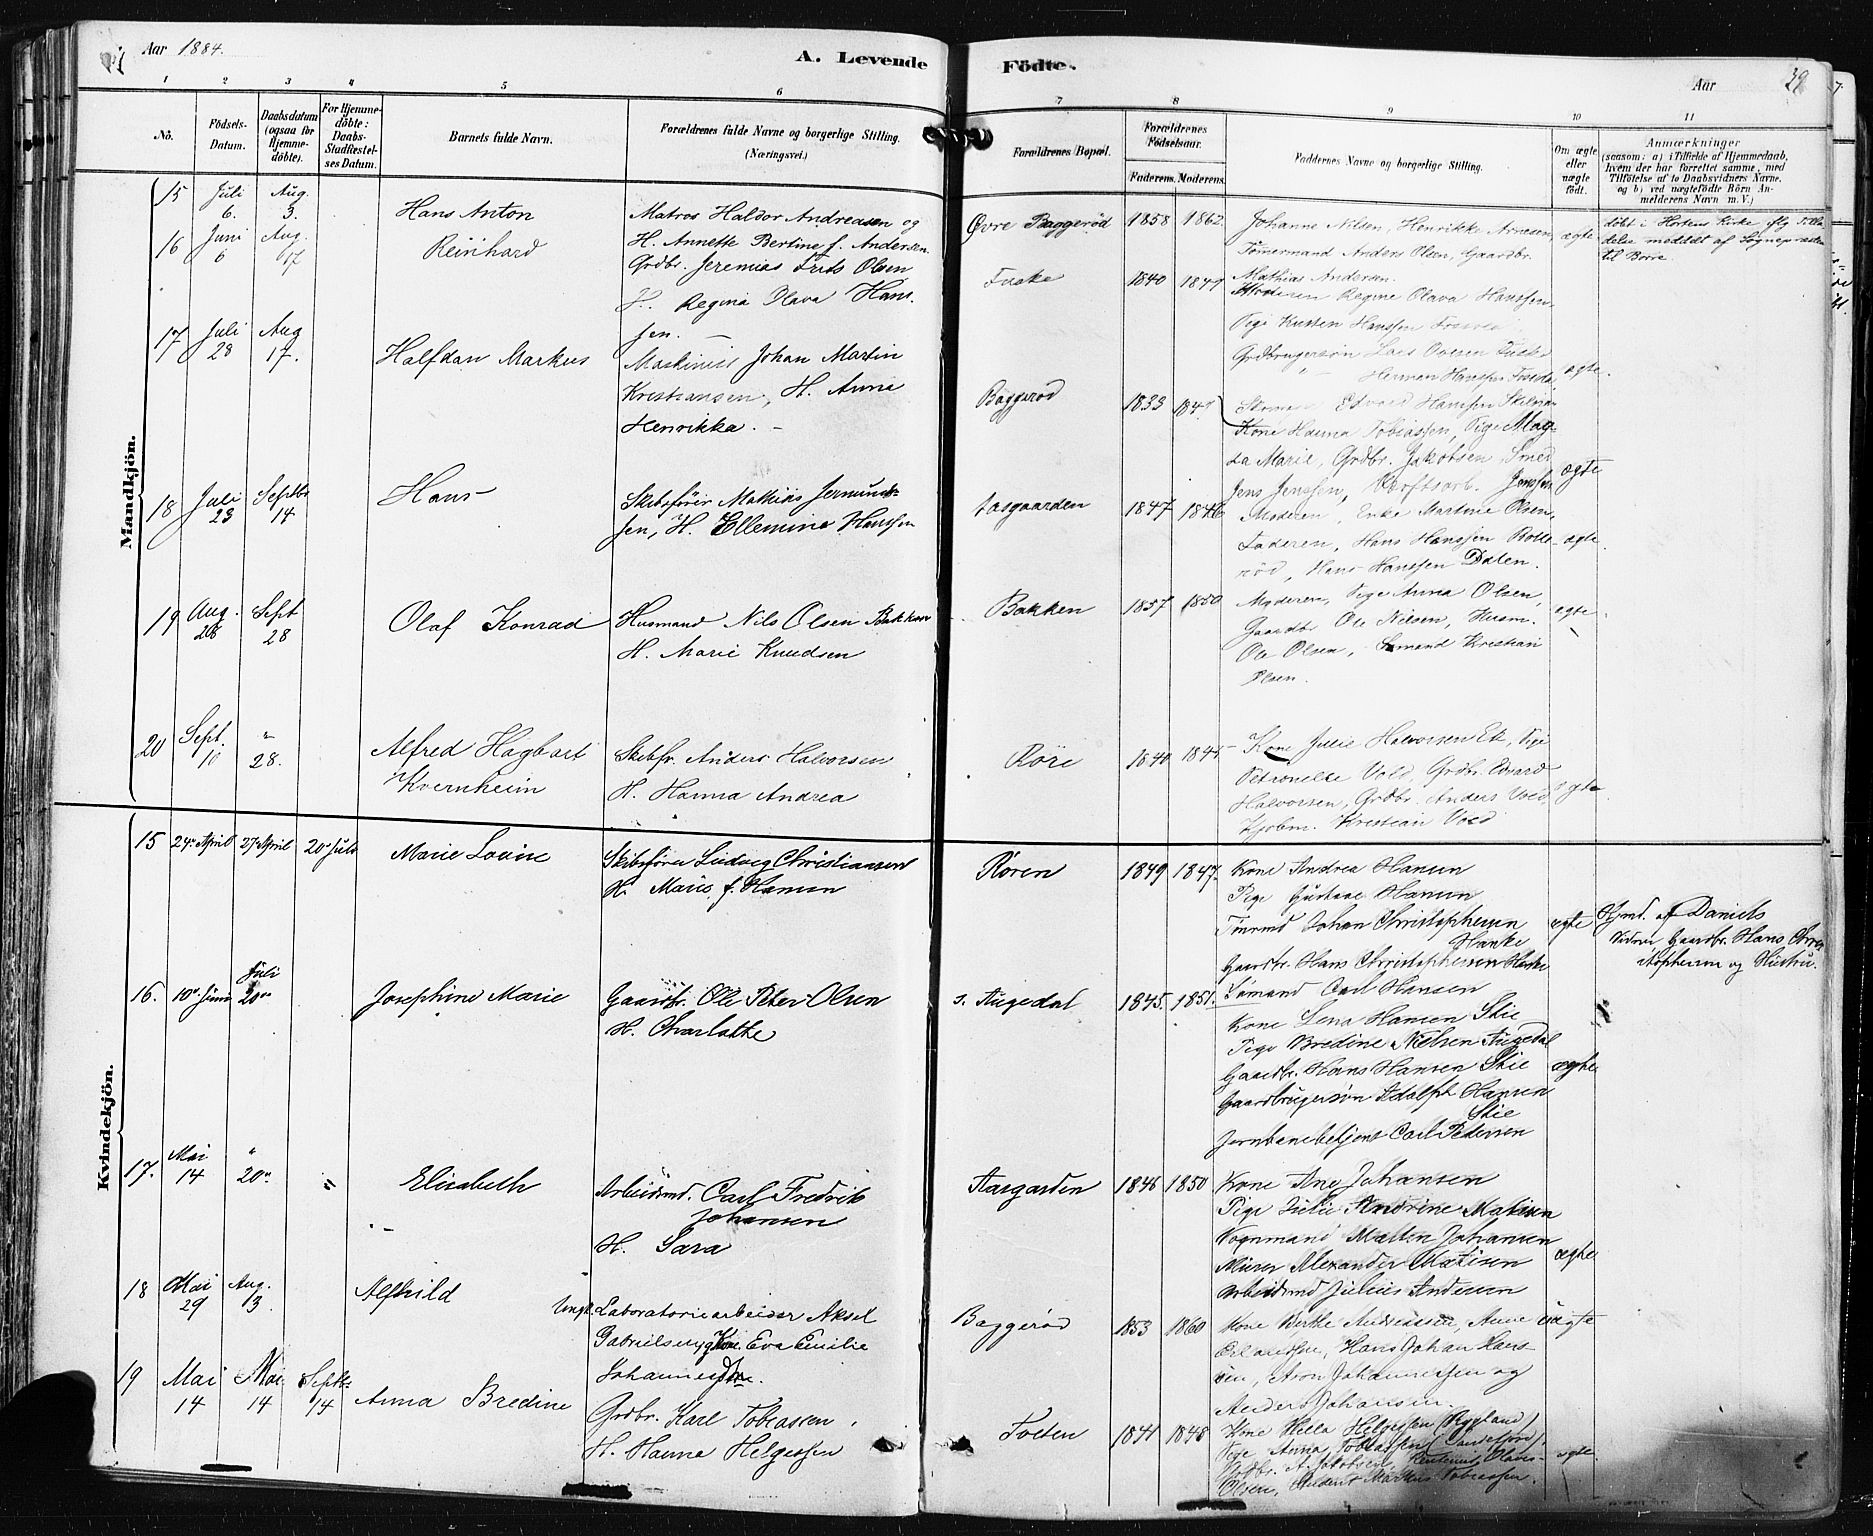 Aar 1884.
A. Levende
Födte.
Aar
39
1 2 3 4 5 6 7 8 9 10 11
No.
Födsels-Datum.
Daabsdatum (ogsaa for Hjemme-döbte).
For Hjemme-döbte: Daabs-Stadfestel-ses Datum.
Barnets fulde Navn.
Forældrenes fulde Navne og borgerlige Stilling. (Næringsvei.)
Forældrenes Bopæl.
Forældrenes Födselsaar.
Faderens. Moderens.
Faddernes Navne og borgerlige Stilling.
Om ægte eller uægte födt.
Anmærkninger
(saasom: a) i Tilfælde af Hjemmedaab,
hvem der har forrettet samme, med
Tilföielse af to Daabsvidners Navne.
og b) ved uægtefödte Börn An-
melderens Navn m. V.)
Mandkjön.
15 Juli 6. Aug. 3. Hans Anton
Matros Haldor Andreasen og
H. Annette Bertine f. Andersen.
Øvre Baggeröd 1858 1862
Johanne Nilsen, Henrikke Arnesen,
Tömermand Anders Olsen, Gaardbr.
Mathias Andersen.
ægte
döbt i Hortens Kirke iflg.
delse meddelt af Sognepresten
til Borre.
16 Juni 6 Aug. 17 Reinhard
Grdbr. Jeremias Frits Olsen
H. Regina Olava Hans-
sen. —
1840 1849
Moderen Regine Olava Hanssen,
Pige Hanssen
Grdbrugersön Lars
Herman Hanssen
ægte.
17 Juli 28 Aug 17. Halfdan Markus
Maskinist Johan Martin
Kristiansen, H. Anne
Henrikka. -
Baggeröd 1833
Edvard Hanssen
Kone Hanna Tobiassen, Pige Mag-
da Marie, Grdbr. Jakobsen, Smed
Jens Jenssen, Værftsarb. Jenssen
ægte
18 Juli 23 Septbr 14 Hans
Skibsförer Mathias Jermund-
sen, H. Ellemine Hanssen
Aasgaarden 1847 1846
Moderen, Enke Martine Olsen,
Faderen, Hans Hanssen Rolle-
röd, Hans Hanssen Dalen.
ægte.
19 Aug. 28 Sept 28 Olaf Konrad
Husmand Nils Olsen Bakken
H. Marie Knudsen
Bakken 1857 1850
Moderen, Pige Anna Olsen,
Gaardbr Ole Nilsen, Husm.
Ole Olsen, Sömand Kristian
Olsen.
ægte
20 Sept. 10 " 28. Alfred Hagbart
Kvernheim
Skibsfr. Anders Halvorsen
H. Hanna Andrea
Röre 1840 1845
Kone Julie Halvorsen Ek, Pige
Petronelle Vold, Grdbr. Edvard
Halvorsen, Grdbr. Anders Vold,
Kjöbm. Kristian Vold
ægte
Kvindekjön.
15 24de April 27de April 20de Juli Marie Lovise
Skibsförer Ludvig Christiansen
H. Marie f. Hansen
Røren 1849 1847.
Kone Andrea Hansen
Pige Gustava Hansen
Tömrmd Johan Christophersen
Hanke
Gaardbr. Hans Christophersen Hanke
Sømand Carl Hansen
ægte
Hjmd. af Daniels
Vidner Gaardbr. Hans Chris-
stophersen og Hustru.
16. 10de Juni Juli 20de Josephine Marie
Gaardbr. Ole Peter Olsen
H. Charlotte
s. Augedal 1845. 1851.
Kone Lena Hansen Skie
Pige Bredine Nielsen Augedal
Gaardbr. Hans Hansen Skie
Gaardbrugersøn Adolph Hansen
Skie
Jernbanebetjent Carl Pedersen
ægte
17. Mai 14 " 20de " Elisabeth
Arbeidsmd. Carl Fredrik
Johansen
H. Sara
Aasgarden 1846 1850
Kone Ane Johansen
Pige Julie Andrine Mathisen
Vognmand Martin Johansen
Murer Alexander Matisen
Arbeidsmd Julius Andersen
ægte
18 Mai 29 Aug. 13. Alfhild
Ungk. Laboratoriearbeider Aksel
Gabrielsen, Eva Emilie
Johannesdtr.
Baggeröd 1853 1860
Kone Birthe Andreassen, Anne
Erlandsen, Hans Johan Han-
sen, Aron Johannessen og
Anders Johansen.
uægte
19 Mai 14 Mai 14 Septbr 14 Anna Bredine
Grdbr. Karl Tobiassen,
H. Hanna Helgessen
Tveten 1841 1848
Kone Hella Helgessen (Rygland),
Pige Anna Tobiassen (Sandefjord),
Grdbr. A. Jakobsen,
Olsen, Student Markus Tobiassen.
ægte.